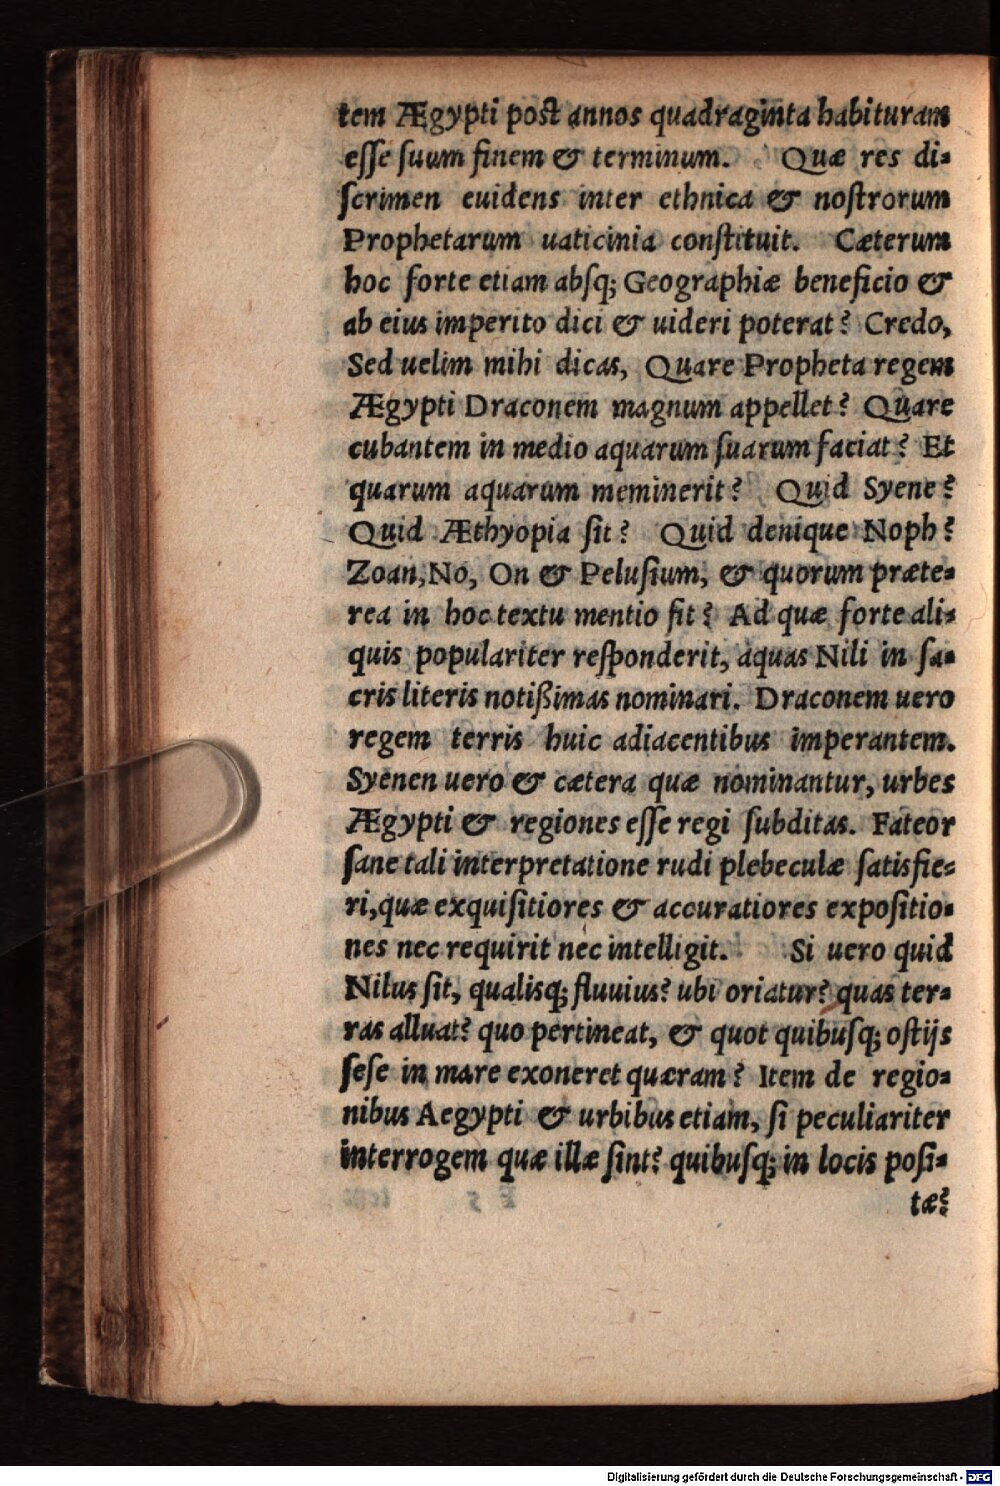 tem Ægypti post annos quadraginta habituram
esse suum finem & terminum. Quæ res di-
scrimen euidens inter ethnica & nostrorum
Prophetarum uaticinia constituit. Cæterum
hoc forte etiam absq; Geographiæ beneficio &
ab eius imperito dici & uideri poterat? Credo,
Sed uelim mihi dicas, Quare Propheta regem
Ægypti Draconem magnum appellet? Quare
cubantem in medio aquarum suarum faciat? Et
quarum aquarum meminerit? Quid Syene?
Quid Æthyopia sit? Quid denique Noph?
Zoan, No, On & Pelusium, & quorum præte-
rea in hoc textu mentio fit? Ad quæ forte ali-
quis populariter responderit, aquas Nili in sa-
cris literis notißimas nominari. Draconem uero
regem terris huic adiacentibus imperantem.
Syenen uero & cætera quæ nominantur, urbes
Ægypti & regiones esse regi subditas. Fateor
sane tali interpretatione rudi plebeculæ satisfie-
ri, quæ exquisitiores & accuratiores expositio-
nes nec requirit nec intelligit. Si uero quid
Nilus sit, qualisq; fluuius? ubi oriatur? quas ter-
ras alluat? quo pertineat, & quot quibusq; ostijs
sese in mare exoneret quæram? Item de regio-
nibus Aegypti & urbibus etiam, si peculiariter
interrogem quæ illæ sint? quibusq; in locis posi-
tæ?
Digitalisierung gefördert durch die Deutsche Forschungsgemeinschaft - DFG